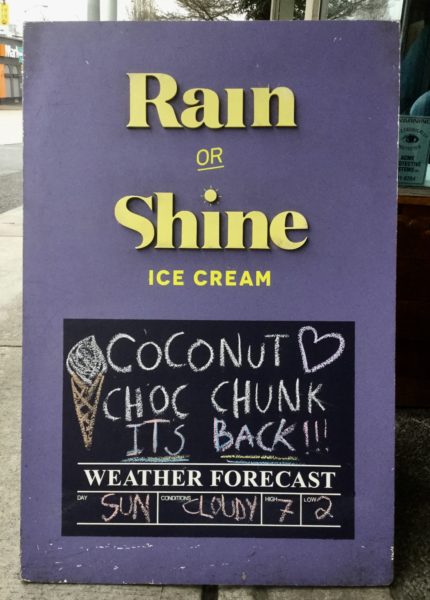 Rain
OR
Shine
ICE CREAM
COCONUT
CHOC CHUNK
ITS BACK!!!
WEATHER FORECAST
DAY SUN CONDITIONS CLOUDY HIGH 7 LOW 2
WARNING
ACME